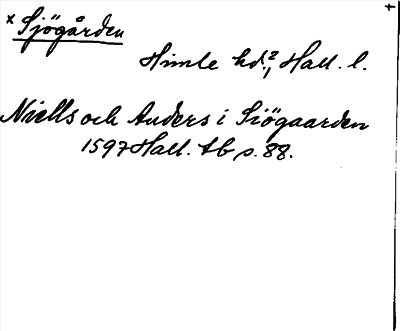 × Sjögården
Himle hd.?, Hall. l.
Niells och Anders i Siögaarden
1597 Hall. tb s. 88.